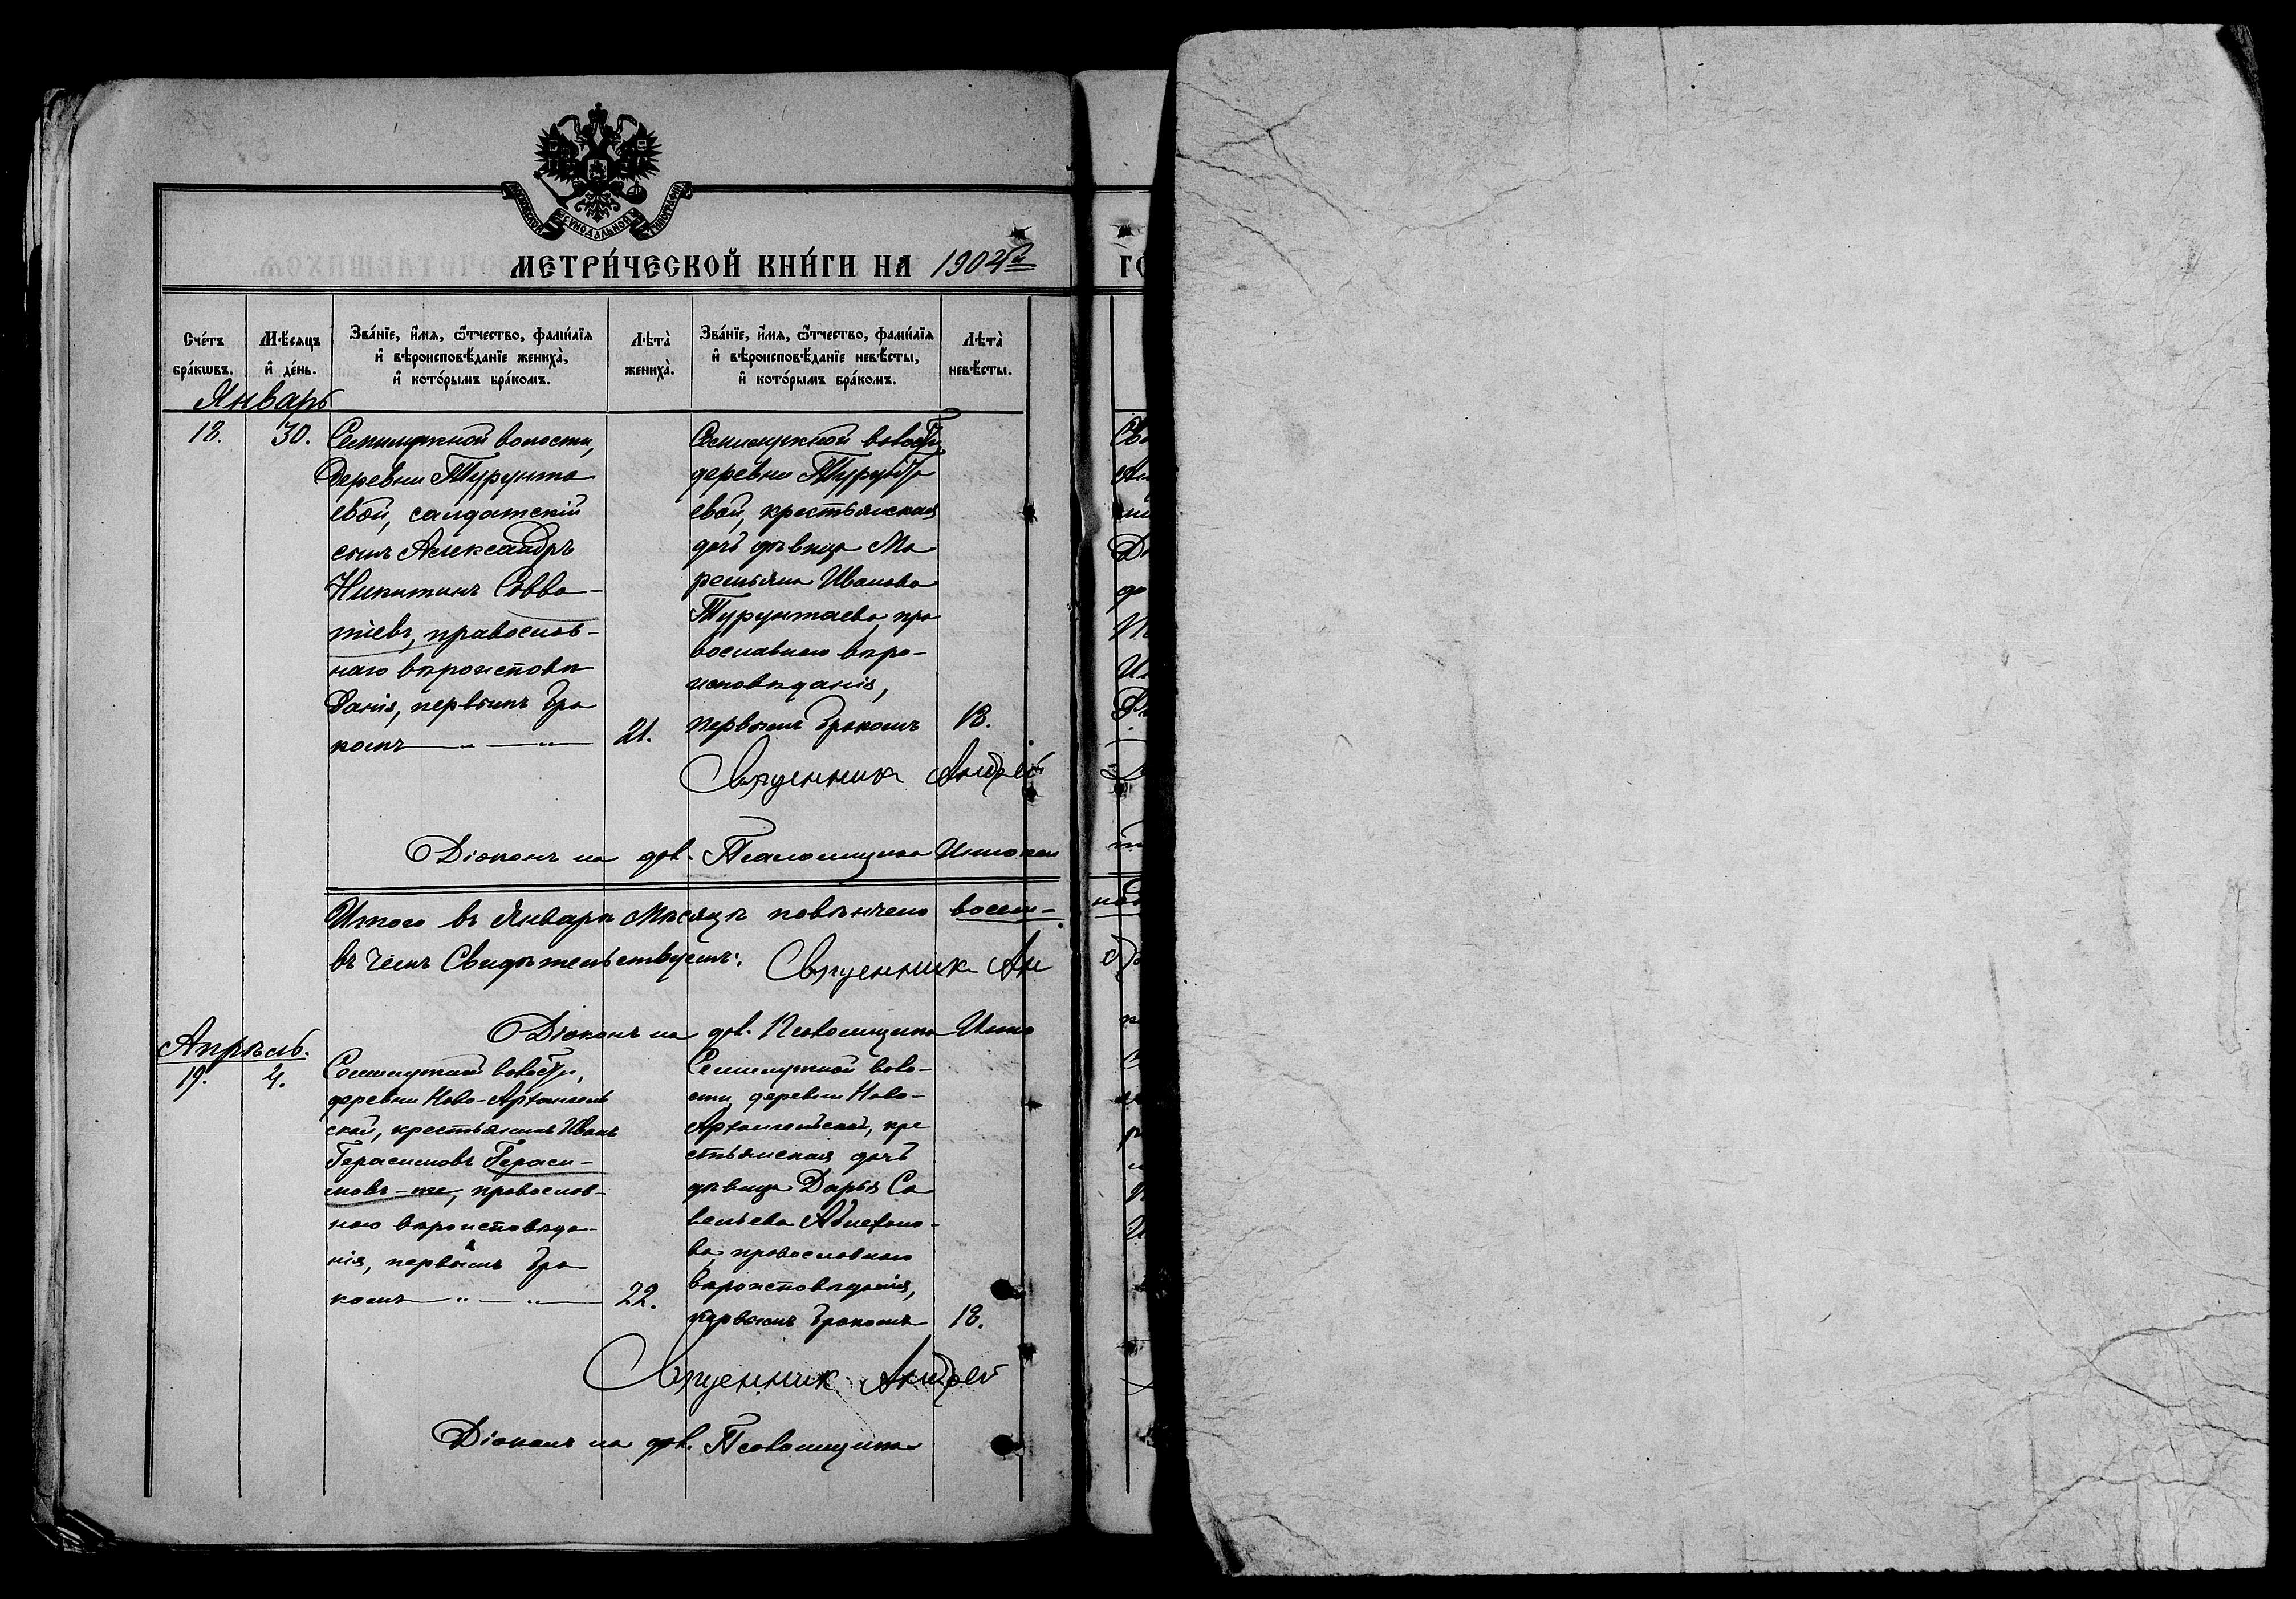 МОСКОВСКОЙ СѴНОДАЛЬНОЙ ТИПОГРАФІИ
МЕТРИ́ЧЕСКОЙ КНИ́ГИ НА 1904й
ГО
Сче́тъ бра́кѡвъ.
Мѣ́сяцъ и҆ де́нь.
Зва́нїе, и҆́мѧ, ѻ҆́тчество, фами́лїѧ
и҆ вѣроисповѣ́данїе женихà,
и҆ кото́рымъ бра́комъ.
Лѣтà женихà.
Зва́нїе, и҆́мѧ, ѻ҆́тчество, фами́лїѧ
и҆ вѣроисповѣ́данїе невѣ́сты,
и҆ кото́рымъ бра́комъ.
Лѣтà невѣ́сты.
Январь
18.
30.
Семилужной волости,
деревни Турунта
евой, салдатскій
сынъ Александръ
Никитинъ Савва-
тіевъ, православ-
наго вѣроисповѣ
данія, первымъ бра
комъ — „ — „ —
21.
Семилужной волости,
деревни Турунта
евой, крестьянская
дочь дѣвица Ма
ремьяна Иванова
Турунтаева, пра
вославнаго вѣро-
исповѣданія,
первымъ бракомъ
18.
Священникъ Андрей
Діаконъ на дол. Псаломщика Иннокен
Итого въ Январѣ Мѣсяцѣ повѣнчено восем-
въ чемъ Свидѣтельствуемъ:
Священникъ Ан
Діаконъ на дол. Псаломщика Инно
Апрѣль.
19.
4.
Семилужной волости,
деревни Ново-Архангель
ской, крестьянинъ Иванъ
Герасимовъ Гераси-
мовъ-же, православ-
наго вѣроисповѣда-
нія, первымъ бра
комъ — „ — „ —
22.
Семилужной воло-
сти, деревни Ново-
Архангельской, кре
стьянская дочь
дѣвица Дарья Са
вельева
ва, православнаго
вѣроисповѣданія,
первымъ бракомъ
18.
Священникъ Андрей
Діаконъ на дол. Псаломщика